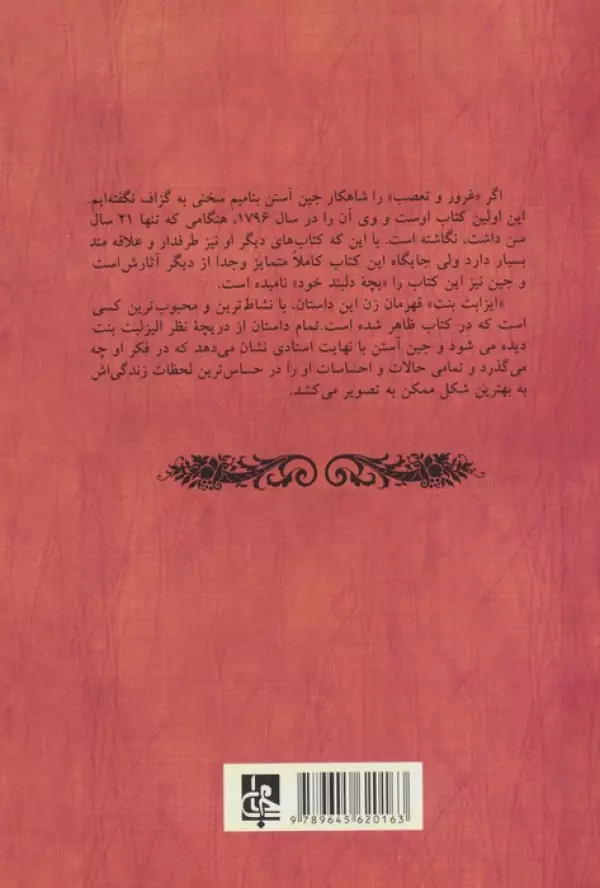 اگر «غرور و تعصب» را شاهکار جین آستن بنامیم سخنی به گزاف نگفته‌ایم.
این اولین کتاب اوست و وی آن را در سال ۱۷۹۶، هنگامی که تنها ۲۱ سال
سن داشت، نگاشته است. با این که کتاب‌های دیگر او نیز طرفدار و علاقه مند
بسیار دارد ولی جایگاه این کتاب کاملاً متمایز وجدا از دیگر آثارش است
و جین نیز این کتاب را «بچهٔ دلبند خود» نامیده است.
«ایزابت بنت» قهرمان زن این داستان، با نشاط‌ترین و محبوب‌ترین کسی
است که در کتاب ظاهر شده است. تمام داستان از دریچهٔ نظر الیزلبت بنت
دیده می شود و جین آستن با نهایت استادی نشان می‌دهد که در فکر او چه
می‌گذرد و تمامی حالات و احساسات او را در حساس‌ترین لحظات زندگی‌اش
به بهترین شکل ممکن به تصویر می‌کشد.
9 789645 620163